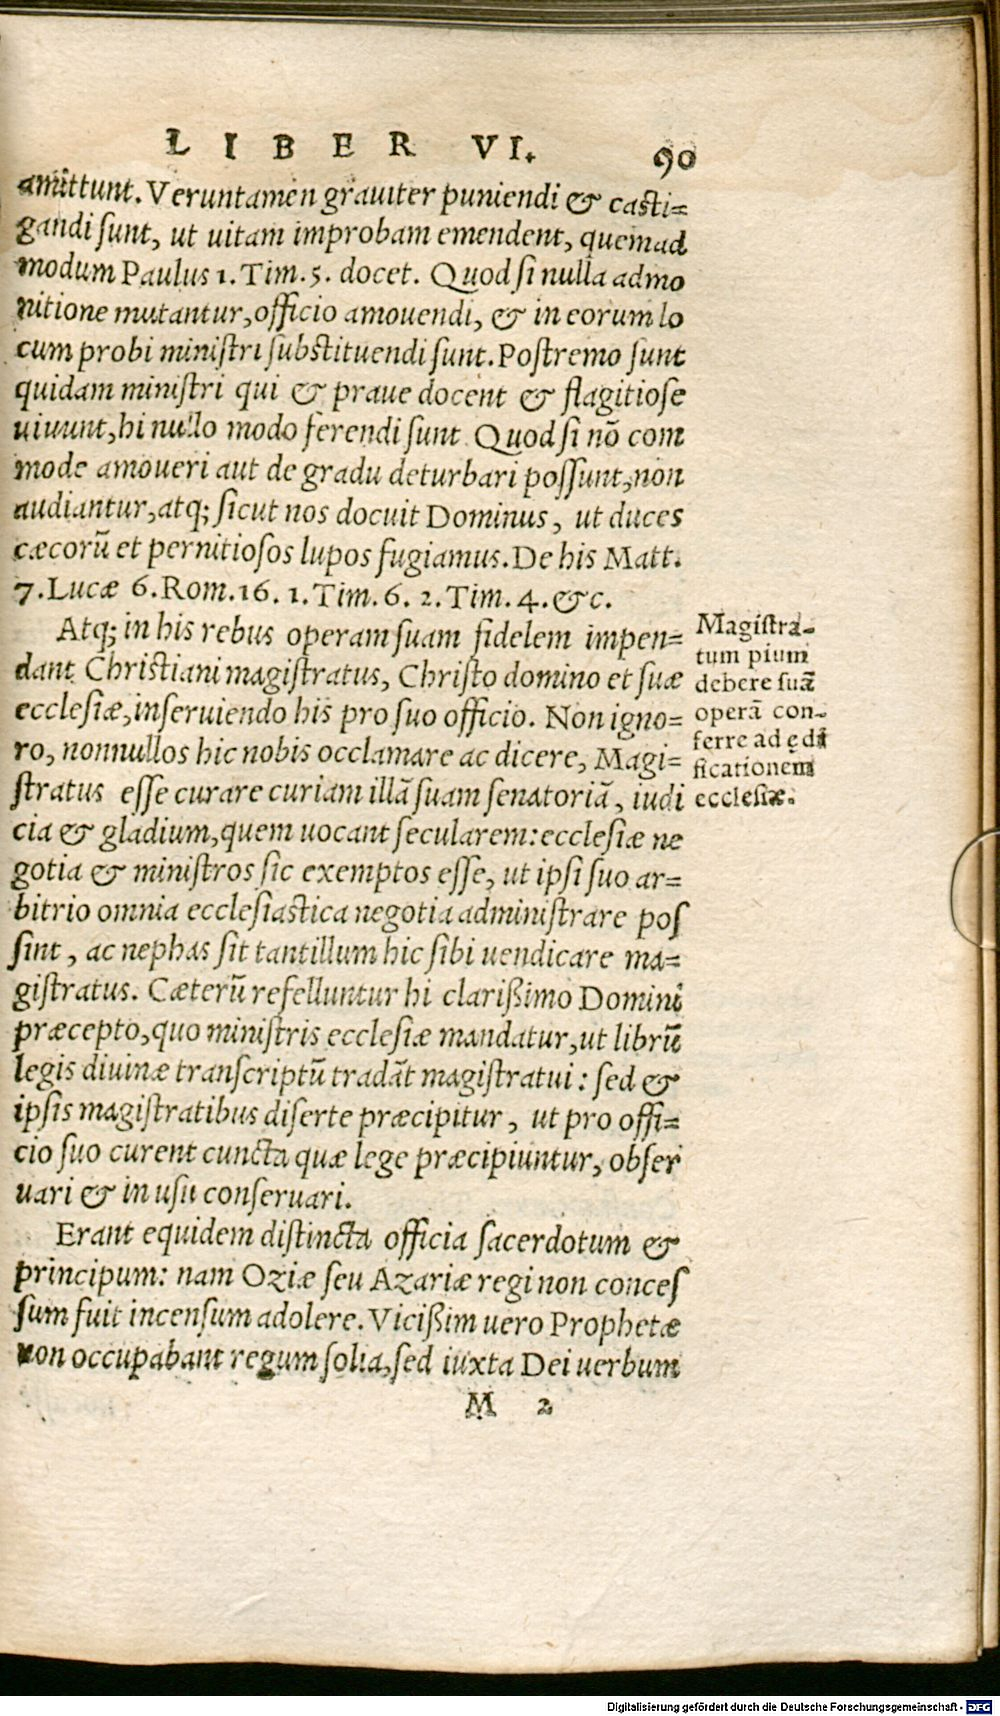 LIBER VI. 90
amittunt. Veruntamen grauiter puniendi & casti=
gandi sunt, ut uitam improbam emendent, quemad
modum Paulus 1. Tim. 5. docet. Quod si nulla admo
nitione mutantur, officio amouendi, & in eorum lo
cum probi ministri substituendi sunt. Postremo sunt
quidam ministri qui & praue docent & flagitiose
uiuunt, hi nullo modo ferendi sunt. Quod si nō com
mode amoueri aut de gradu deturbari possunt, non
audiantur, atq; sicut nos docuit Dominus, ut duces
cæcorū et pernitiosos lupos fugiamus. De his Matt.
7. Lucæ 6. Rom. 16. 1. Tim. 6. 2. Tim. 4. &c.
Atq; in his rebus operam suam fidelem impen=
dant Christiani magistratus, Christo domino et suæ
ecclesiæ, inseruiendo his pro suo officio. Non igno=
ro, nonnullos hic nobis occlamare ac dicere, Magi=
stratus esse curare curiam illā suam senatoriā, iudi
cia & gladium, quem uocant secularem: ecclesiæ ne
gotia & ministros sic exemptos esse, ut ipsi suo ar=
bitrio omnia ecclesiastica negotia administrare pos
sint, ac nephas sit tantillum hic sibi uendicare ma=
gistratus. Cæterū refelluntur hi clarißimo Domini
præcepto, quo ministris ecclesiæ mandatur, ut librū
legis diuinæ transcriptū tradāt magistratui: sed &
ipsis magistratibus diserte præcipitur, ut pro offi=
cio suo curent cuncta quæ lege præcipiuntur, obser
uari & in usu conseruari.
Erant equidem distincta officia sacerdotum &
principum: nam Oziæ seu Azariæ regi non conces
sum fuit incensum adolere. Vicißim uero Prophetæ
non occupabant regum solia, sed iuxta Dei uerbum
M 2
Magistra-
tum pium
debere suā
operā con-
ferre ad ędi
ficationem
ecclesiæ.
Digitalisierung gefördert durch die Deutsche Forschungsgemeinschaft - DFG